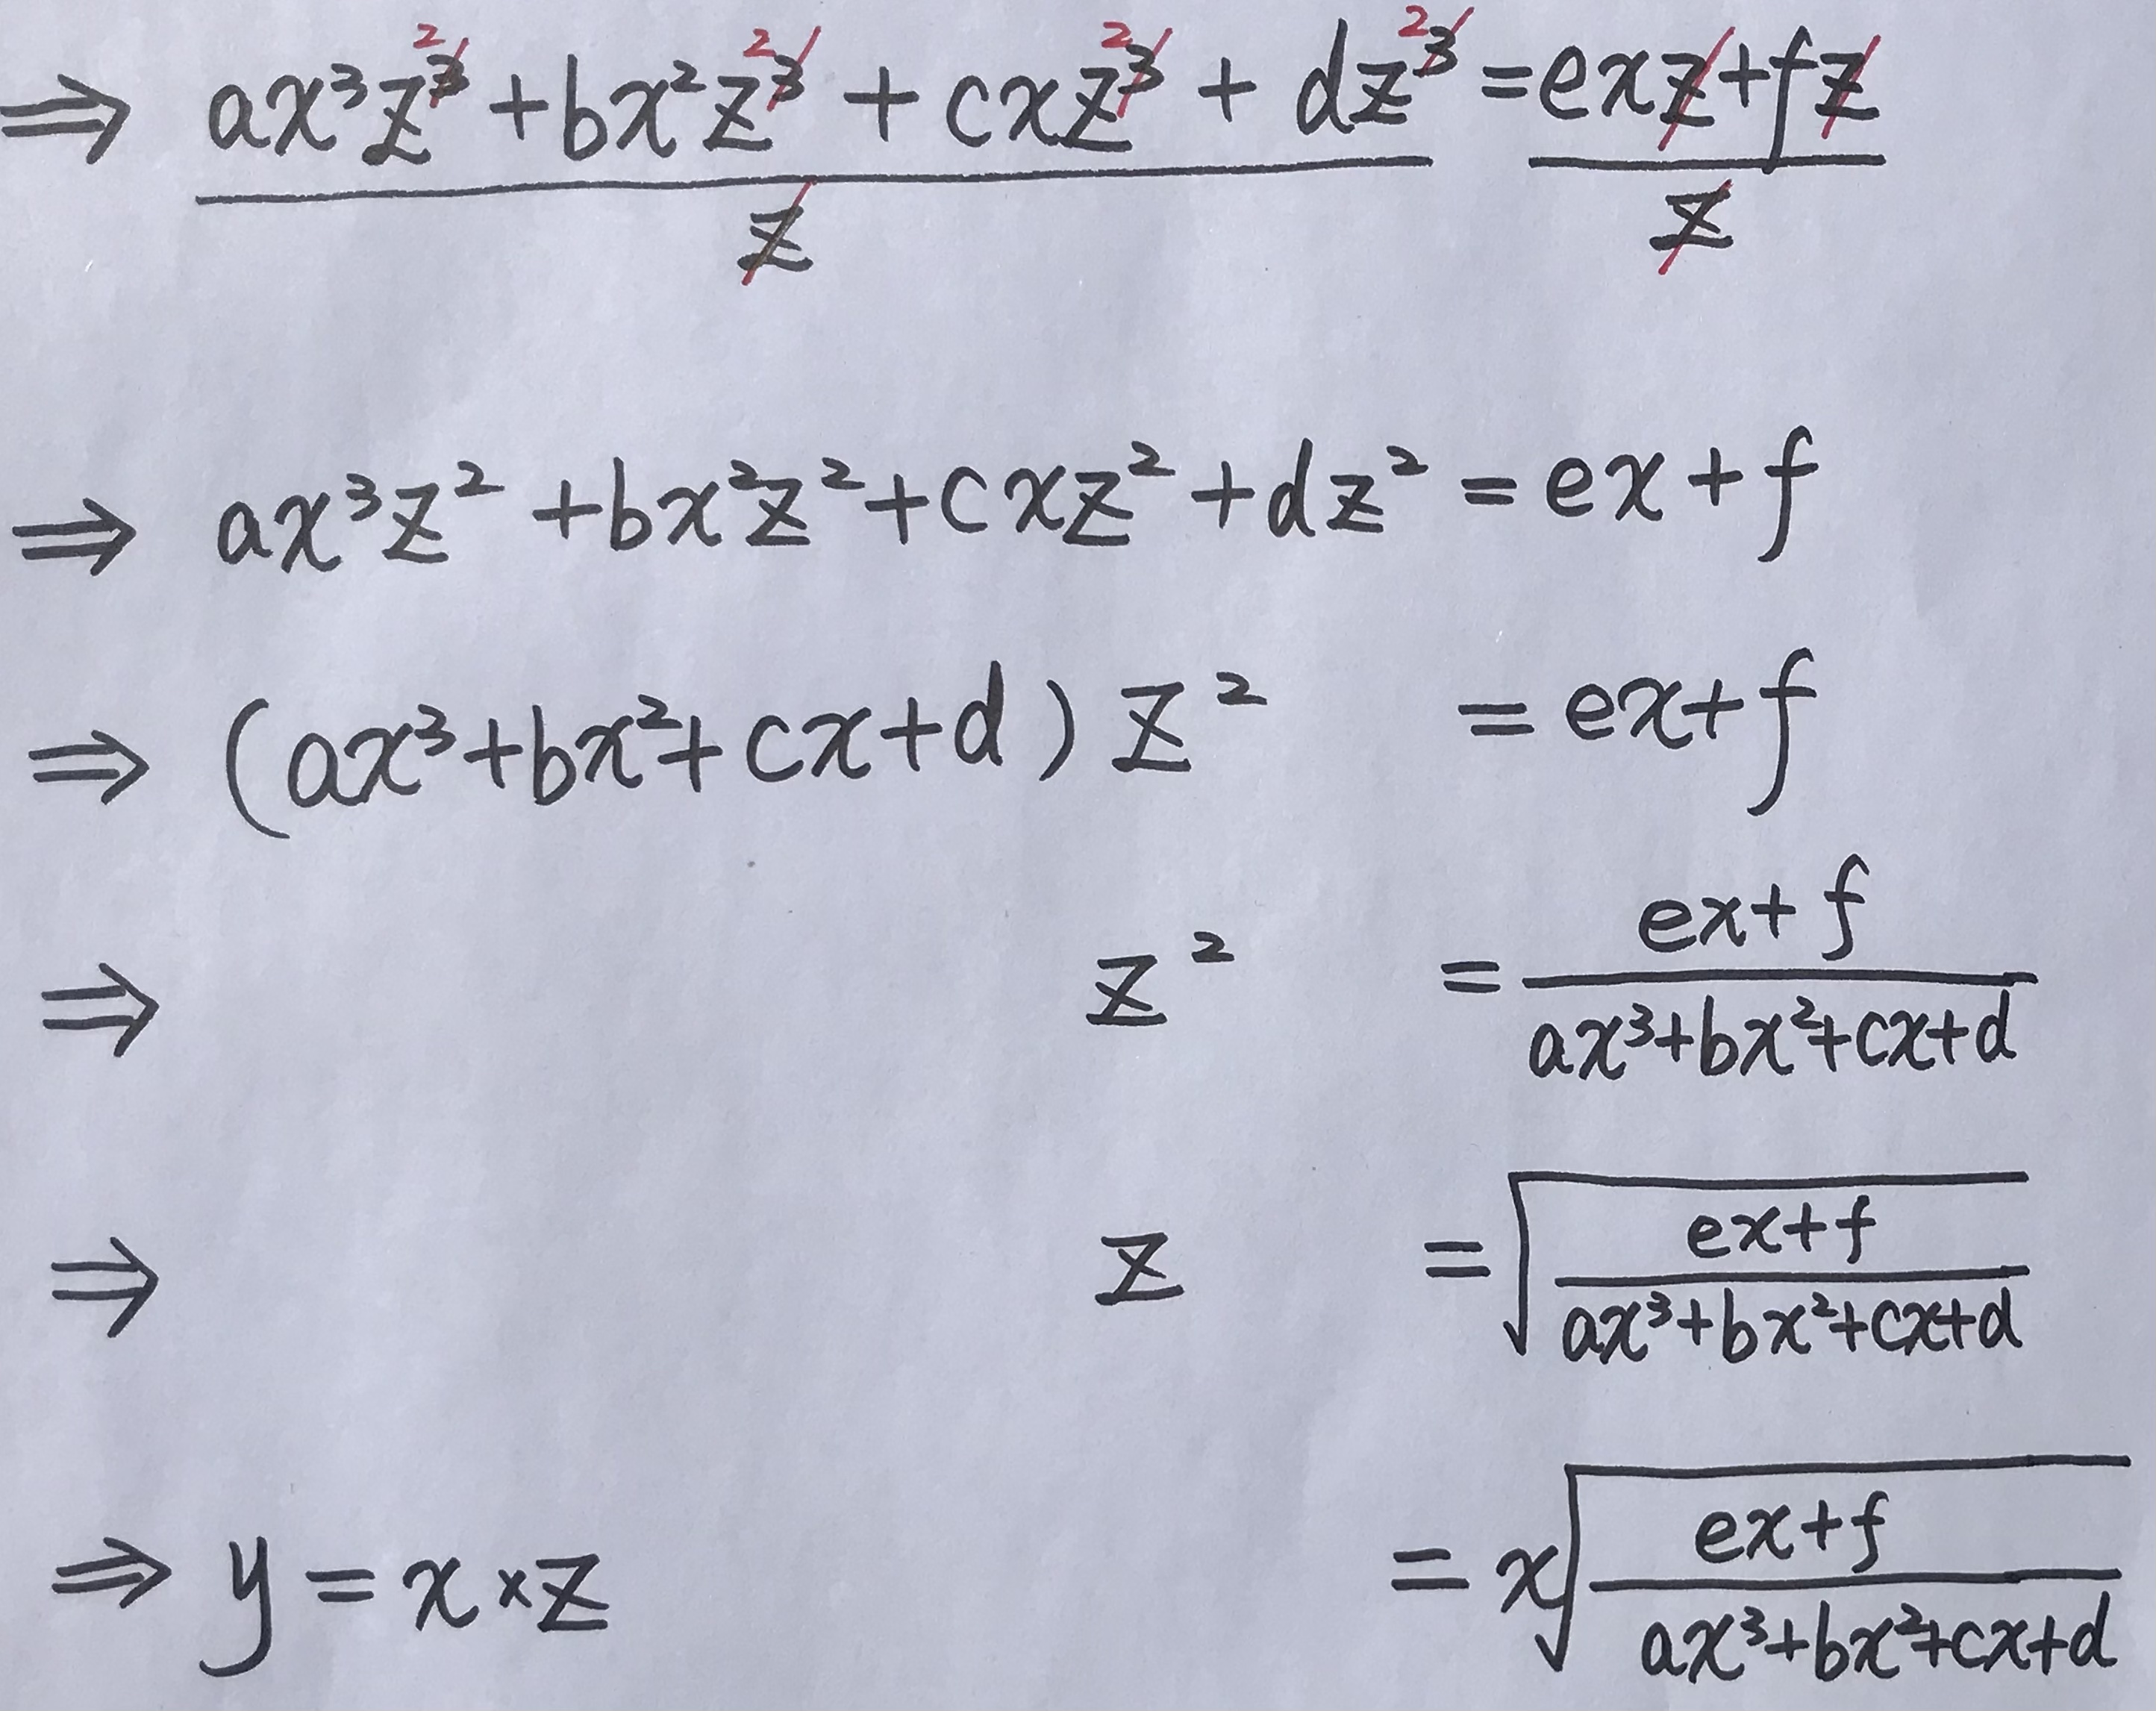 ⇒ (ax³z³ + bx²z³ + cxz³ + dz³)/z = (exz + fz)/z
2 2 2 2
⇒ ax³z² + bx²z² + cxz² + dz² = ex + f
⇒ (ax³ + bx² + cx + d) z² = ex + f
⇒ z² = (ex + f)/(ax³ + bx² + cx + d)
⇒ z = √((ex + f)/(ax³ + bx² + cx + d))
⇒ y = x × z = x√((ex + f)/(ax³ + bx² + cx + d))